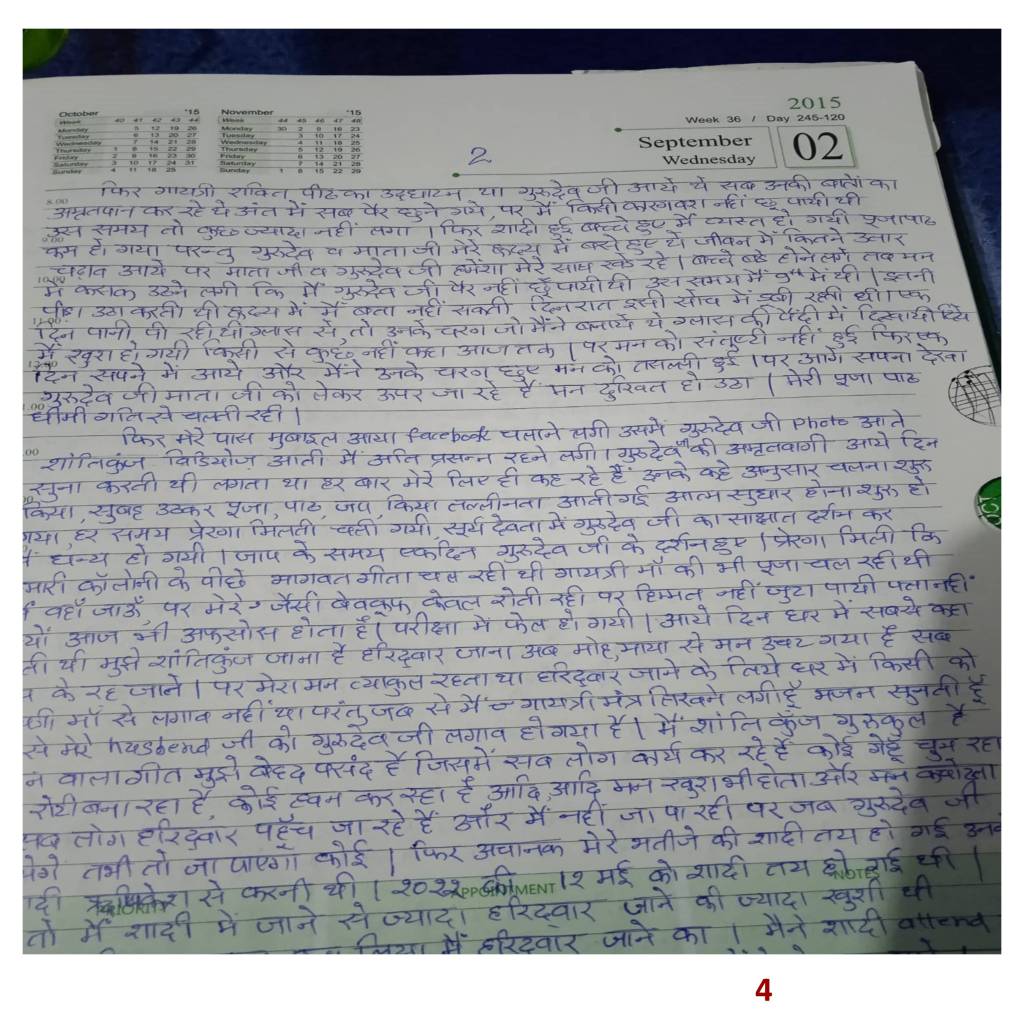 October '15
Week 40 41 42 43 44
Monday 5 12 19 26
Tuesday 6 13 20 27
Wednesday 7 14 21 28
Thursday 1 8 15 22 29
Friday 2 9 16 23 30
Saturday 3 10 17 24 31
Sunday 4 11 18 25
November '15
Week 44 45 46 47 48
Monday 30 2 9 16 23
Tuesday 3 10 17 24
Wednesday 4 11 18 25
Thursday 5 12 19 26
Friday 6 13 20 27
Saturday 7 14 21 28
Sunday 1 8 15 22 29
2015
Week 36 / Day 245-120
September
Wednesday
02
2
फिर गायत्री शक्ति पीठ का उद्घाटन था गुरुदेव जी आये थे सब उनकी बातों का
अमृतपान कर रहे थे अंत में सब पैर छुने गये, पर मैं किसी कारणवश नहीं छू पायी थी
उस समय तो कुछ ज्यादा नहीं लगा । फिर शादी हुई बच्चे हुए मैं व्यस्त हो गयी पूजापाठ
कम हो गया परन्तु गुरुदेव व माताजी मेरे हृदय में बसे हुए थे जीवन में कितने उतार
चढ़ाव आये पर माताजी व गुरुदेव जी हमेशा मेरे साथ रहे । बच्चे बड़े होने लगे तब मन
में कसक उठने लगी कि मैं गुरुदेव जी पैर नहीं छू पायी थी उस समय मैं 9th में थी । इतनी
पीड़ा उठा करती थी हृदय में मैं बता नहीं सकती दिनरात इसी सोच में डूबी रहती थी । एक
दिन पानी पी रही थी ग्लास से, तो उनके चरण जो मैंने बनाये थे ग्लास की पेंदी में दिखायी दिये
मैं खुश हो गयी किसी से कुछ नहीं कहा आज तक । पर मन को सतुष्टी नहीं हुई फिर एक
दिन सपने में आये और मैंने उनके चरण छुए मन को तसल्ली हुई । पर आगे सपना देखा
गुरुदेव जी माता जी को लेकर ऊपर जा रहे हैं मन दुखित हो उठा । मेरी पूजा पाठ
धीमी गति से चलती रही ।
फिर मेरे पास मुबाइल आया facebook चलाने लगी उसमें गुरुदेव जी photo आते
शांतिकुंज विडियोज़ आती मैं अति प्रसन्न रहने लगी । गुरुदेव की अमृतवाणी आये दिन
सुना करती थी लगता था हर बार मेरे लिए ही कह रहे हैं उनके कहे अनुसार चलना शुरू
किया, सुबह उठकर पूजा, पाठ, जप, किया तल्लीनता आती गई आत्म सुधार होना शुरू हो
गया, हर समय प्रेरणा मिलती चली गयी सूर्य देवता में गुरुदेव जी का साक्षात दर्शन कर
धन्य हो गयी । जाप के समय एकदिन गुरुदेव जी के दर्शन हुए । प्रेरणा मिली कि
मारी कॉलोनी के पीछे भागवत गीता चल रही थी गायत्री माँ की भी पूजा चल रही थी
वहाँ जाऊँ, पर मेरे जैसी बेवकूफ, केवल रोती रही पर हिम्मत नहीं जुटा पायी पता नहीं
यों आज भी अफसोस होता है । परीक्षा में फेल हो गयी । आये दिन घर में सबसे कहा
ती थी मुझे शांतिकुंज जाना है हरिद्वार जाना अब मोह, माया से मन उचट गया है सब
के रह जाने । पर मेरा मन व्याकुल रहता था हरिद्वार जाने के लिये घर में किसी को
माँ से लगाव नहीं था परंतु जब से मैं गायत्री मंत्र लिखने लगी हूँ भजन सुनती हूँ
से मेरे husbend जी को गुरुदेव जी लगाव हो गया है । मैं शांति कुंज गुरुकुल है
न वाला गीत मुझे बेहद पसंद है जिसमें सब लोग कार्य कर रहे हैं कोई गेहूँ चुन रहा
रोटी बना रहा है, कोई हवन कर रहा है आदि, आदि मन खुश भी होता और मन
सब लोग हरिद्वार पहुँच जा रहे हैं और मैं नहीं जा पा रही पर जब गुरुदेव जी
येगे तभी तो जा पाएगा कोई । फिर अचानक मेरे भतीजे की शादी तय हो गई
दी ऋषिकेश से करनी थी । 2022 की 12 मई को शादी तय हो गई थी ।
तो मैं शादी में जाने से ज्यादा हरिद्वार जाने की ज्यादा खुशी थी
लिया मैं हरिद्वार जाने का । मैंने शादी attend
8.00
9.00
10.00
11.00
12.00
1.00
PRIORITY
APPOINTMENT
NOTES
4